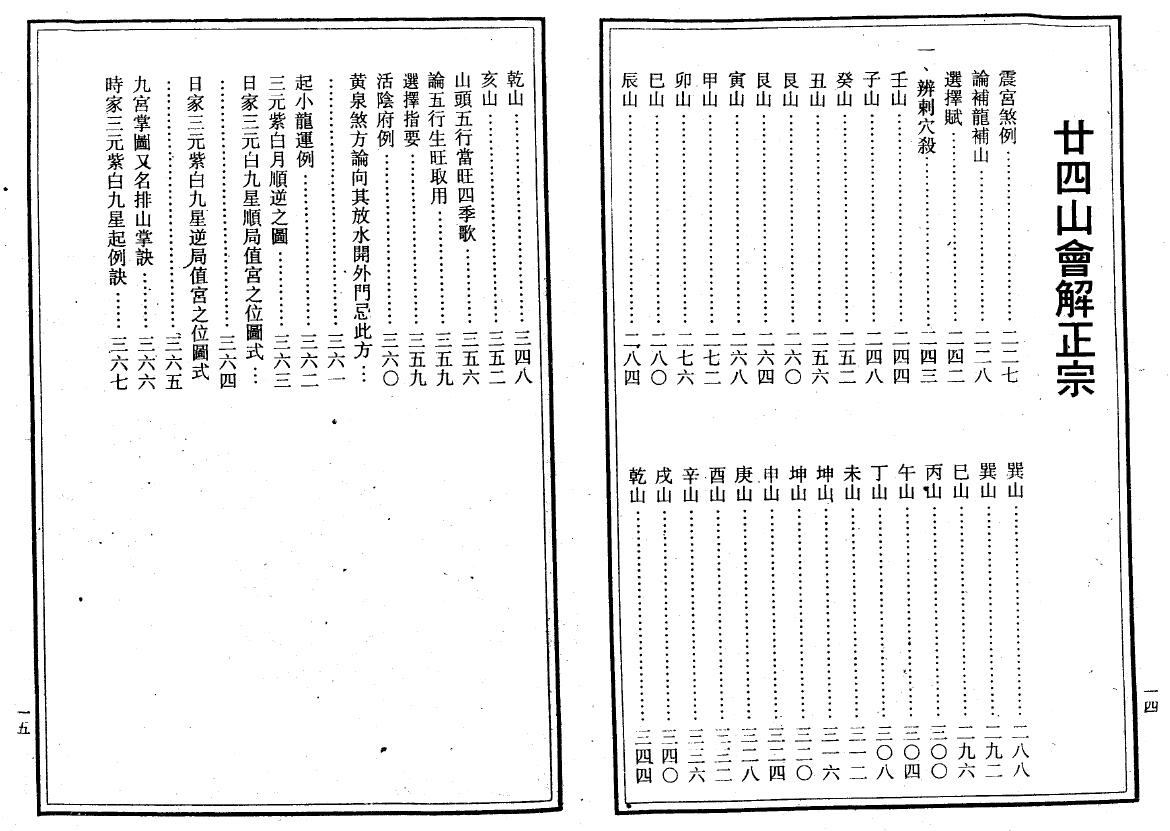 廿四山會解正宗
震宮煞例…………二二七
論補龍補山…………二二八
選擇賦…………二四二
一、辨剌穴殺…………二四三
壬山…………二四四
子山…………二四八
癸山…………二五二
丑山…………二五六
艮山…………二六〇
艮山…………二六四
寅山…………二六八
甲山…………二七二
卯山…………二七六
巳山…………二八〇
辰山…………二八四
巽山…………二八八
巽山…………二九二
巳山…………二九六
丙山…………三〇〇
午山…………三〇四
丁山…………三〇八
未山…………三一二
坤山…………三一六
坤山…………三二〇
申山…………三二四
庚山…………三二八
酉山…………三三二
辛山…………三三六
戌山…………三四〇
乾山…………三四四
一四
乾山…………三四八
亥山…………三五二
山頭五行當旺四季歌…………三五六
論五行生旺取用…………三五九
選擇指要…………三五九
活陰府例…………三六〇
黄泉煞方論向其放水開外門忌此方…
…………三六一
起小龍運例…………三六二
三元紫白月順逆之圖…………三六三
日家三元白九星順局值宮之位圖式…
…………三六四
日家三元紫白九星逆局值宮之位圖式
…………三六五
九宮掌圖又名排山掌訣……三六六
時家三元紫白九星起例訣……三六七
一五